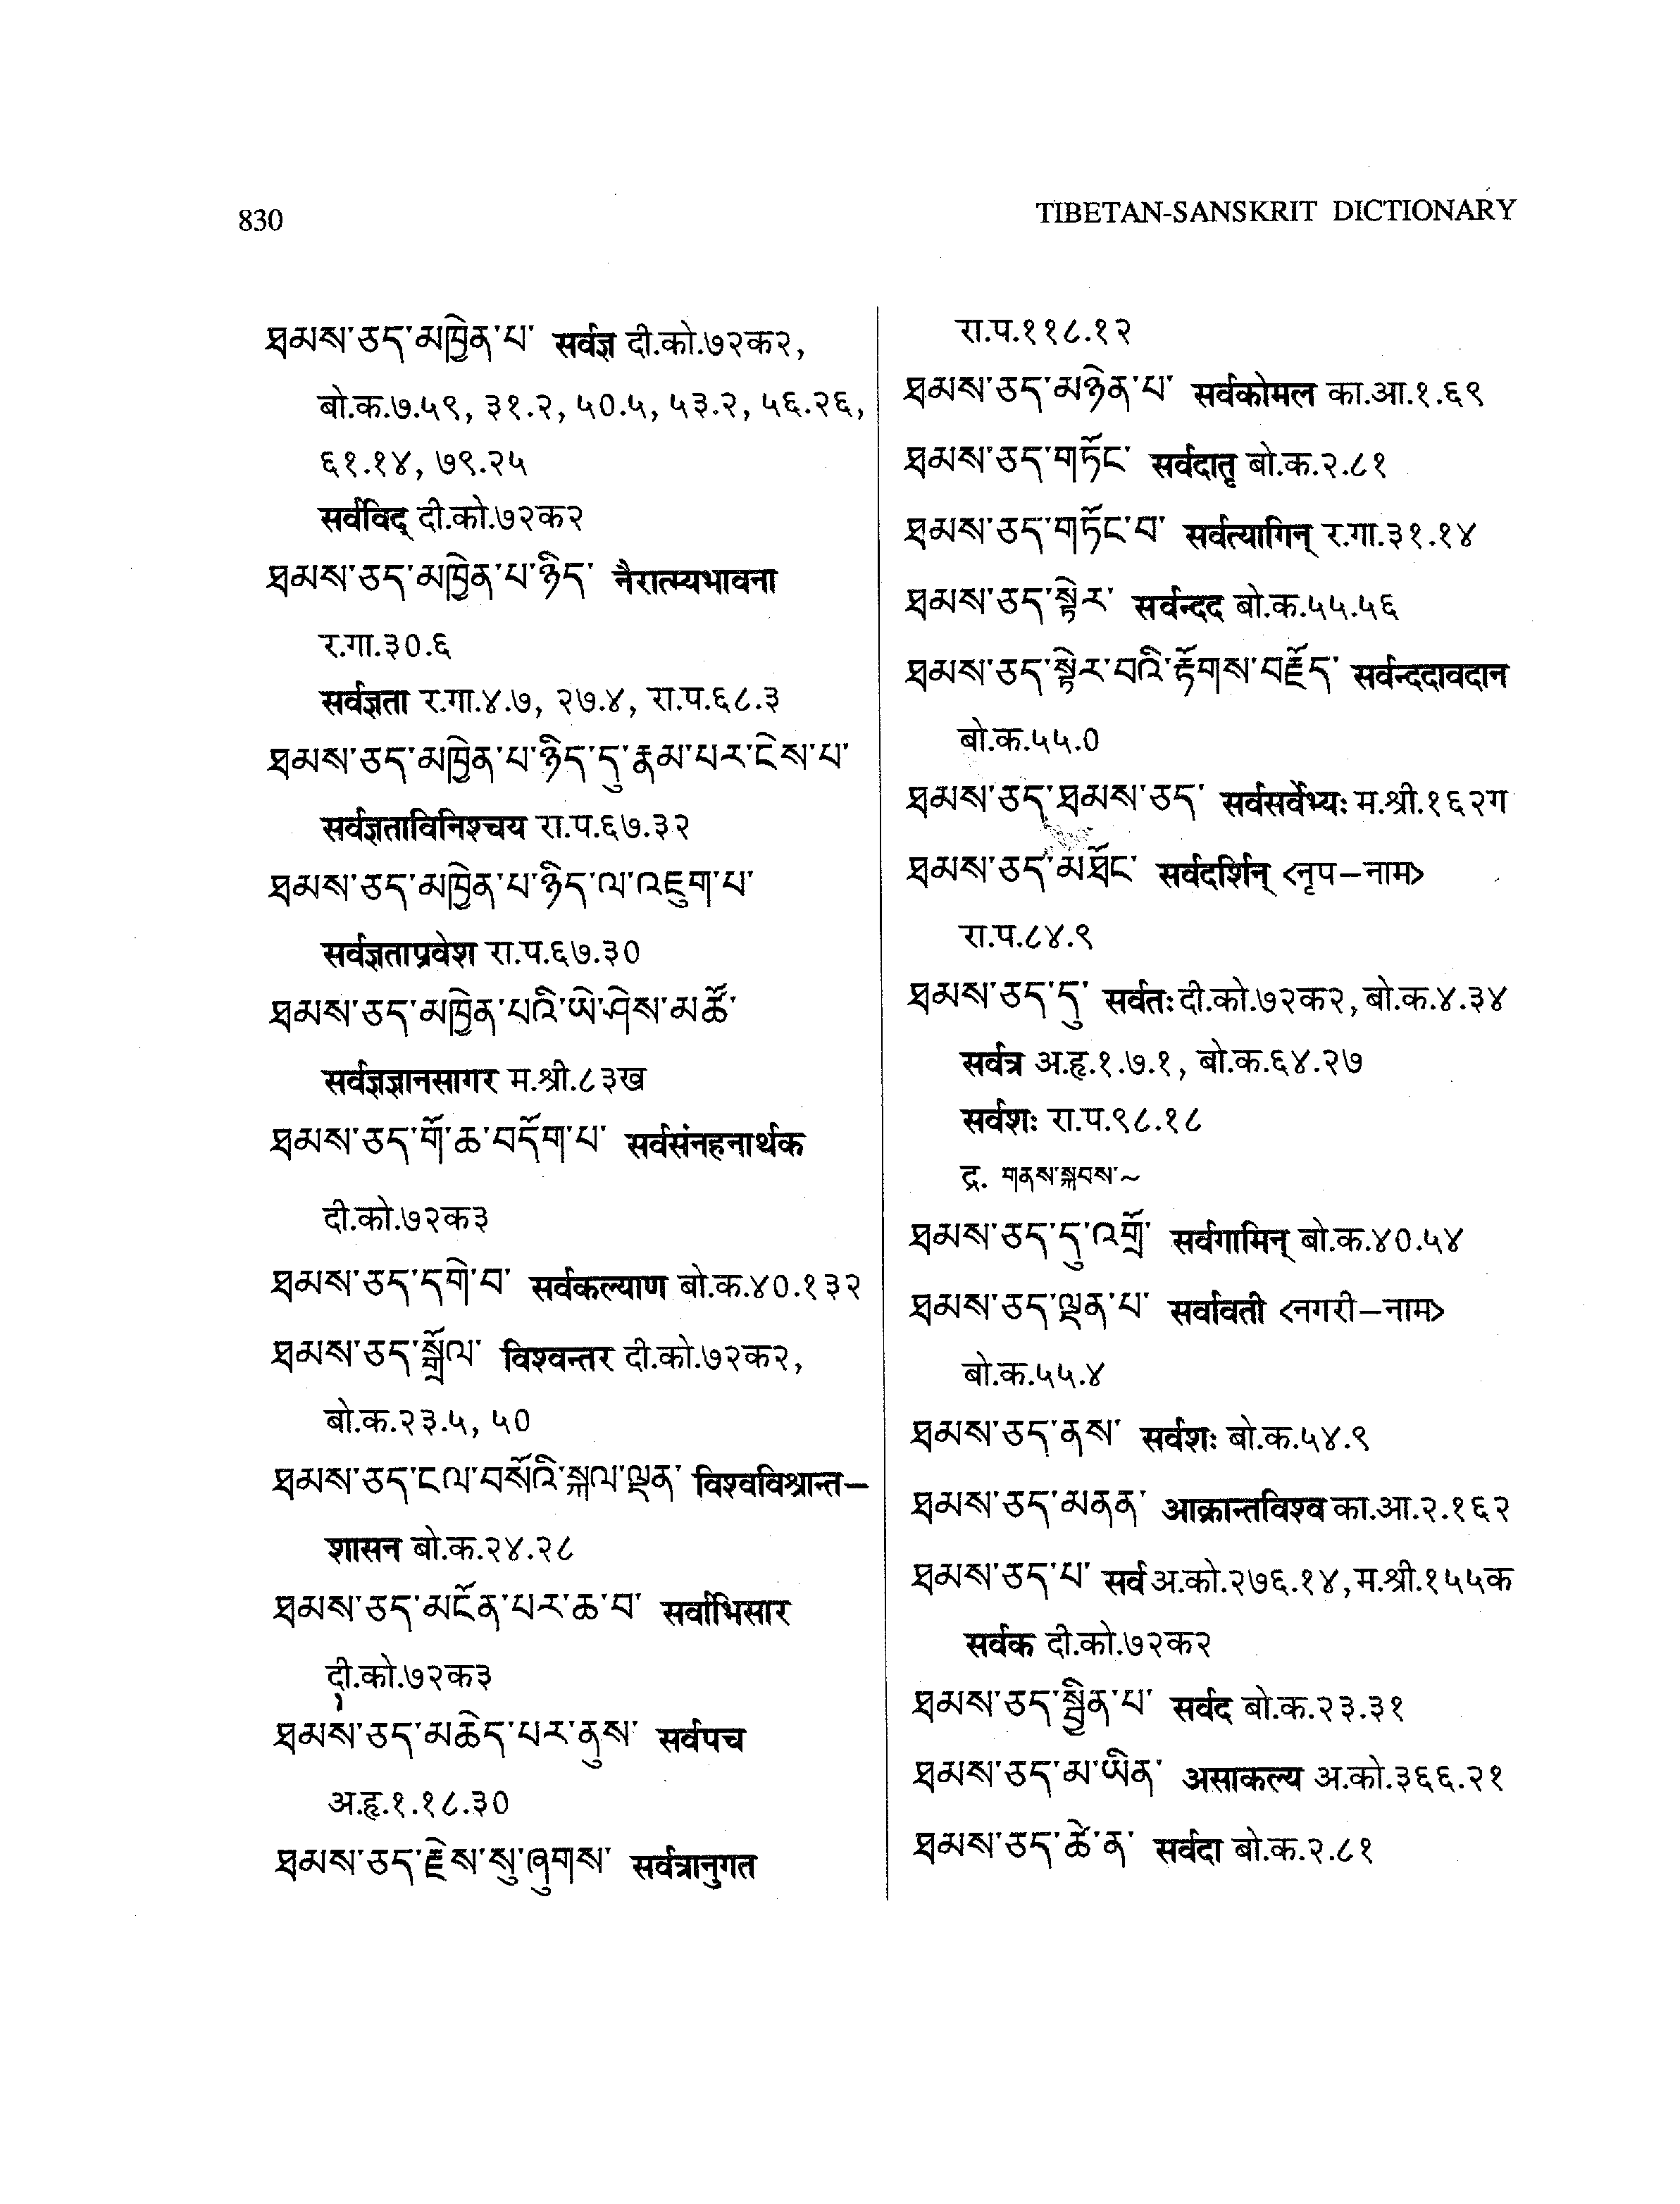 830
TIBETAN-SANSKRIT DICTIONARY
ཐམས་ཅད་མཁྱེན་པ་ सर्वज्ञ दी.को.७२क२,
बो.क.७.५९, ३१.२, ५०.५, ५३.२, ५६.२६,
६१.१४, ७९.२५
सर्वविद् दी.को.७२क२
ཐམས་ཅད་མཁྱེན་པ་ཉིད་ नैरात्म्यभावना
र.गा.३०.६
सर्वज्ञता र.गा.४.७, २७.४, रा.प.६८.३
ཐམས་ཅད་མཁྱེན་པ་ཉིད་དུ་རྣམ་པར་ངེས་པ་
सर्वज्ञताविनिश्चय रा.प.६७.३२
ཐམས་ཅད་མཁྱེན་པ་ཉིད་ལ་འཇུག་པ་
सर्वज्ञताप्रवेश रा.प.६७.३०
ཐམས་ཅད་མཁྱེན་པའི་ཡེ་ཤེས་མཚོ་
सर्वज्ञज्ञानसागर म.श्री.८३ख
ཐམས་ཅད་གོ་ཆ་བདོག་པ་ सर्वसंनहनार्थक
दी.को.७२क३
ཐམས་ཅད་དགེ་བ་ सर्वकल्याण बो.क.४०.१३२
ཐམས་ཅད་སྒྲོལ་ विश्वन्तर दी.को.७२क२,
बो.क.२३.५, ५०
ཐམས་ཅད་ངལ་བསོའི་སྐལ་ལྡན་ विश्वविश्रान्त–
शासन बो.क.२४.२८
ཐམས་ཅད་མངོན་པར་ཆ་བ་ सर्वाभिसार
दी.को.७२क३
ཐམས་ཅད་མཆེད་པར་ནུས་ सर्वपच
अ.हृ.१.१८.३०
ཐམས་ཅད་རྗེས་སུ་ཞུགས་ सर्वत्रानुगत
रा.प.११८.१२
ཐམས་ཅད་མཉེན་པ་ सर्वकोमल का.आ.१.६९
ཐམས་ཅད་གཏོང་ सर्वदातृ बो.क.२.८१
ཐམས་ཅད་གཏོང་བ་ सर्वत्यागिन् र.गा.३१.१४
ཐམས་ཅད་སྟེར་ सर्वन्दद बो.क.५५.५६
ཐམས་ཅད་སྟེར་བའི་རྟོགས་བརྗོད་ सर्वन्ददावदान
बो.क.५५.०
ཐམས་ཅད་ཐམས་ཅད་ सर्वसर्वेभ्यः म.श्री.१६२ग
ཐམས་ཅད་མཐོང་ सर्वदर्शिन् <नृप–नाम>
रा.प.८४.९
ཐམས་ཅད་དུ་ सर्वतः दी.को.७२क२, बो.क.४.३४
सर्वत्र अ.हृ.१.७.१, बो.क.६४.२७
सर्वशः रा.प.९८.१८
द्र. གནས་སྐབས་~
ཐམས་ཅད་དུ་འགྲོ་ सर्वगामिन् बो.क.४०.५४
ཐམས་ཅད་ལྡན་པ་ सर्वावती <नगरी–नाम>
बो.क.५५.४
ཐམས་ཅད་ནས་ सर्वशः बो.क.५४.९
ཐམས་ཅད་མནན་ आक्रान्तविश्व का.आ.२.१६२
ཐམས་ཅད་པ་ सर्व अ.को.२७६.१४, म.श्री.१५५क
सर्वक दी.को.७२क२
ཐམས་ཅད་སྦྱིན་པ་ सर्वद बो.क.२३.३१
ཐམས་ཅད་མ་ཡིན་ असाकल्य अ.को.३६६.२१
ཐམས་ཅད་ཚེ་ན་ सर्वदा बो.क.२.८१